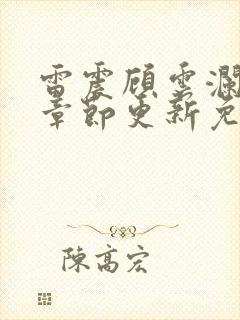 雷震顾雲瀾
章節更新免
陳高宏